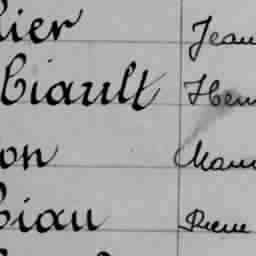 lier Jean
biault Hen
on Mau
biau Pierre